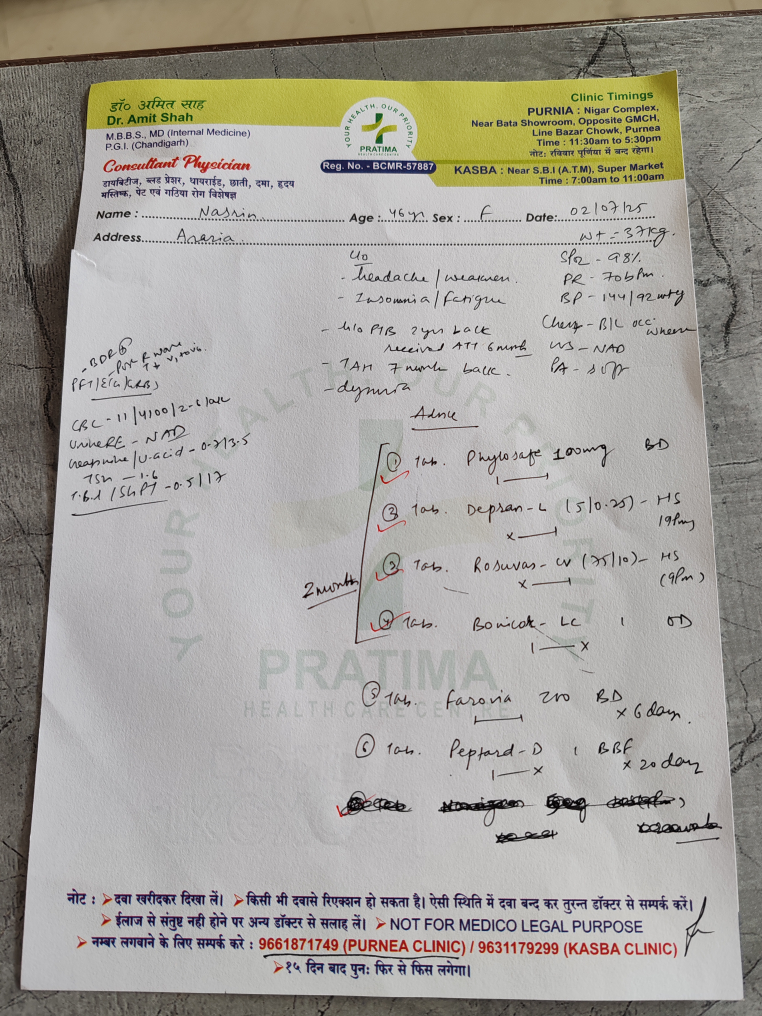 डॉ० अमित साह
Dr. Amit Shah
M.B.B.S., MD (Internal Medicine)
P.G.I. (Chandigarh)
Consultant Physician
डायबिटीज, ब्लड प्रेशर, थायराईड, छाती, दमा, हृदय
मस्तिष्क, पेट एवं गठिया रोग विशेषज्ञ
YOUR HEALTH, OUR PRIORITY
PRATIMA
HEALTH CARE CENTRE
Reg. No. - BCMR-57887
Clinic Timings
PURNIA : Nigar Complex,
Near Bata Showroom, Opposite GMCH,
Line Bazar Chowk, Purnea
Time : 11:30am to 5:30pm
नोट: रविवार पूर्णिया में बन्द रहेगा।
KASBA : Near S.B.I (A.T.M), Super Market
Time : 7:00am to 11:00am
Name : Nasrin Age : 46yr Sex : F Date: 02/07/25
Address Araria wt = 37kg.
c/o
- headache / weakness.
- Insomnia / fatigue
- h/o PTB 2yrs back
received ATT 6 month
- TAH 7 month back.
- dysuria
SPo2 - 98%
PR - 70bpm.
BP - 144/92
Chest - B/L occ. wheeze
- NAD
PA - soft
CBC - 11/4100/
Urine RE - NAD
TSH - 1.6
/ SGPT - 0.5/17
Advice
① Tab. Phylosafe 100mg BD
② Tab. Depran-L (5/0.25) - HS
③ Tab. Rosuvas-CV (75/10) - HS
(9pm)
④ Tab. LC 1 OD
2 months
⑤ Tab. Farovia 200 BD
x 6 day.
⑥ Tab. Peptard-D 1 BBF
x 20 day
YOUR HEALTH OUR PRIORITY
PRATIMA
HEALTH CARE CENTRE
नोट : ➤ दवा खरीदकर दिखा लें। ➤ किसी भी दवासे रिएक्शन हो सकता है। ऐसी स्थिति में दवा बन्द कर तुरन्त डॉक्टर से सम्पर्क करें।
➤ ईलाज से संतुष्ट नही होने पर अन्य डॉक्टर से सलाह लें। ➤ NOT FOR MEDICO LEGAL PURPOSE
➤ नम्बर लगवाने के लिए सम्पर्क करे : 9661871749 (PURNEA CLINIC) / 9631179299 (KASBA CLINIC)
➤ १५ दिन बाद पुनः फिर से फिस लगेगा।